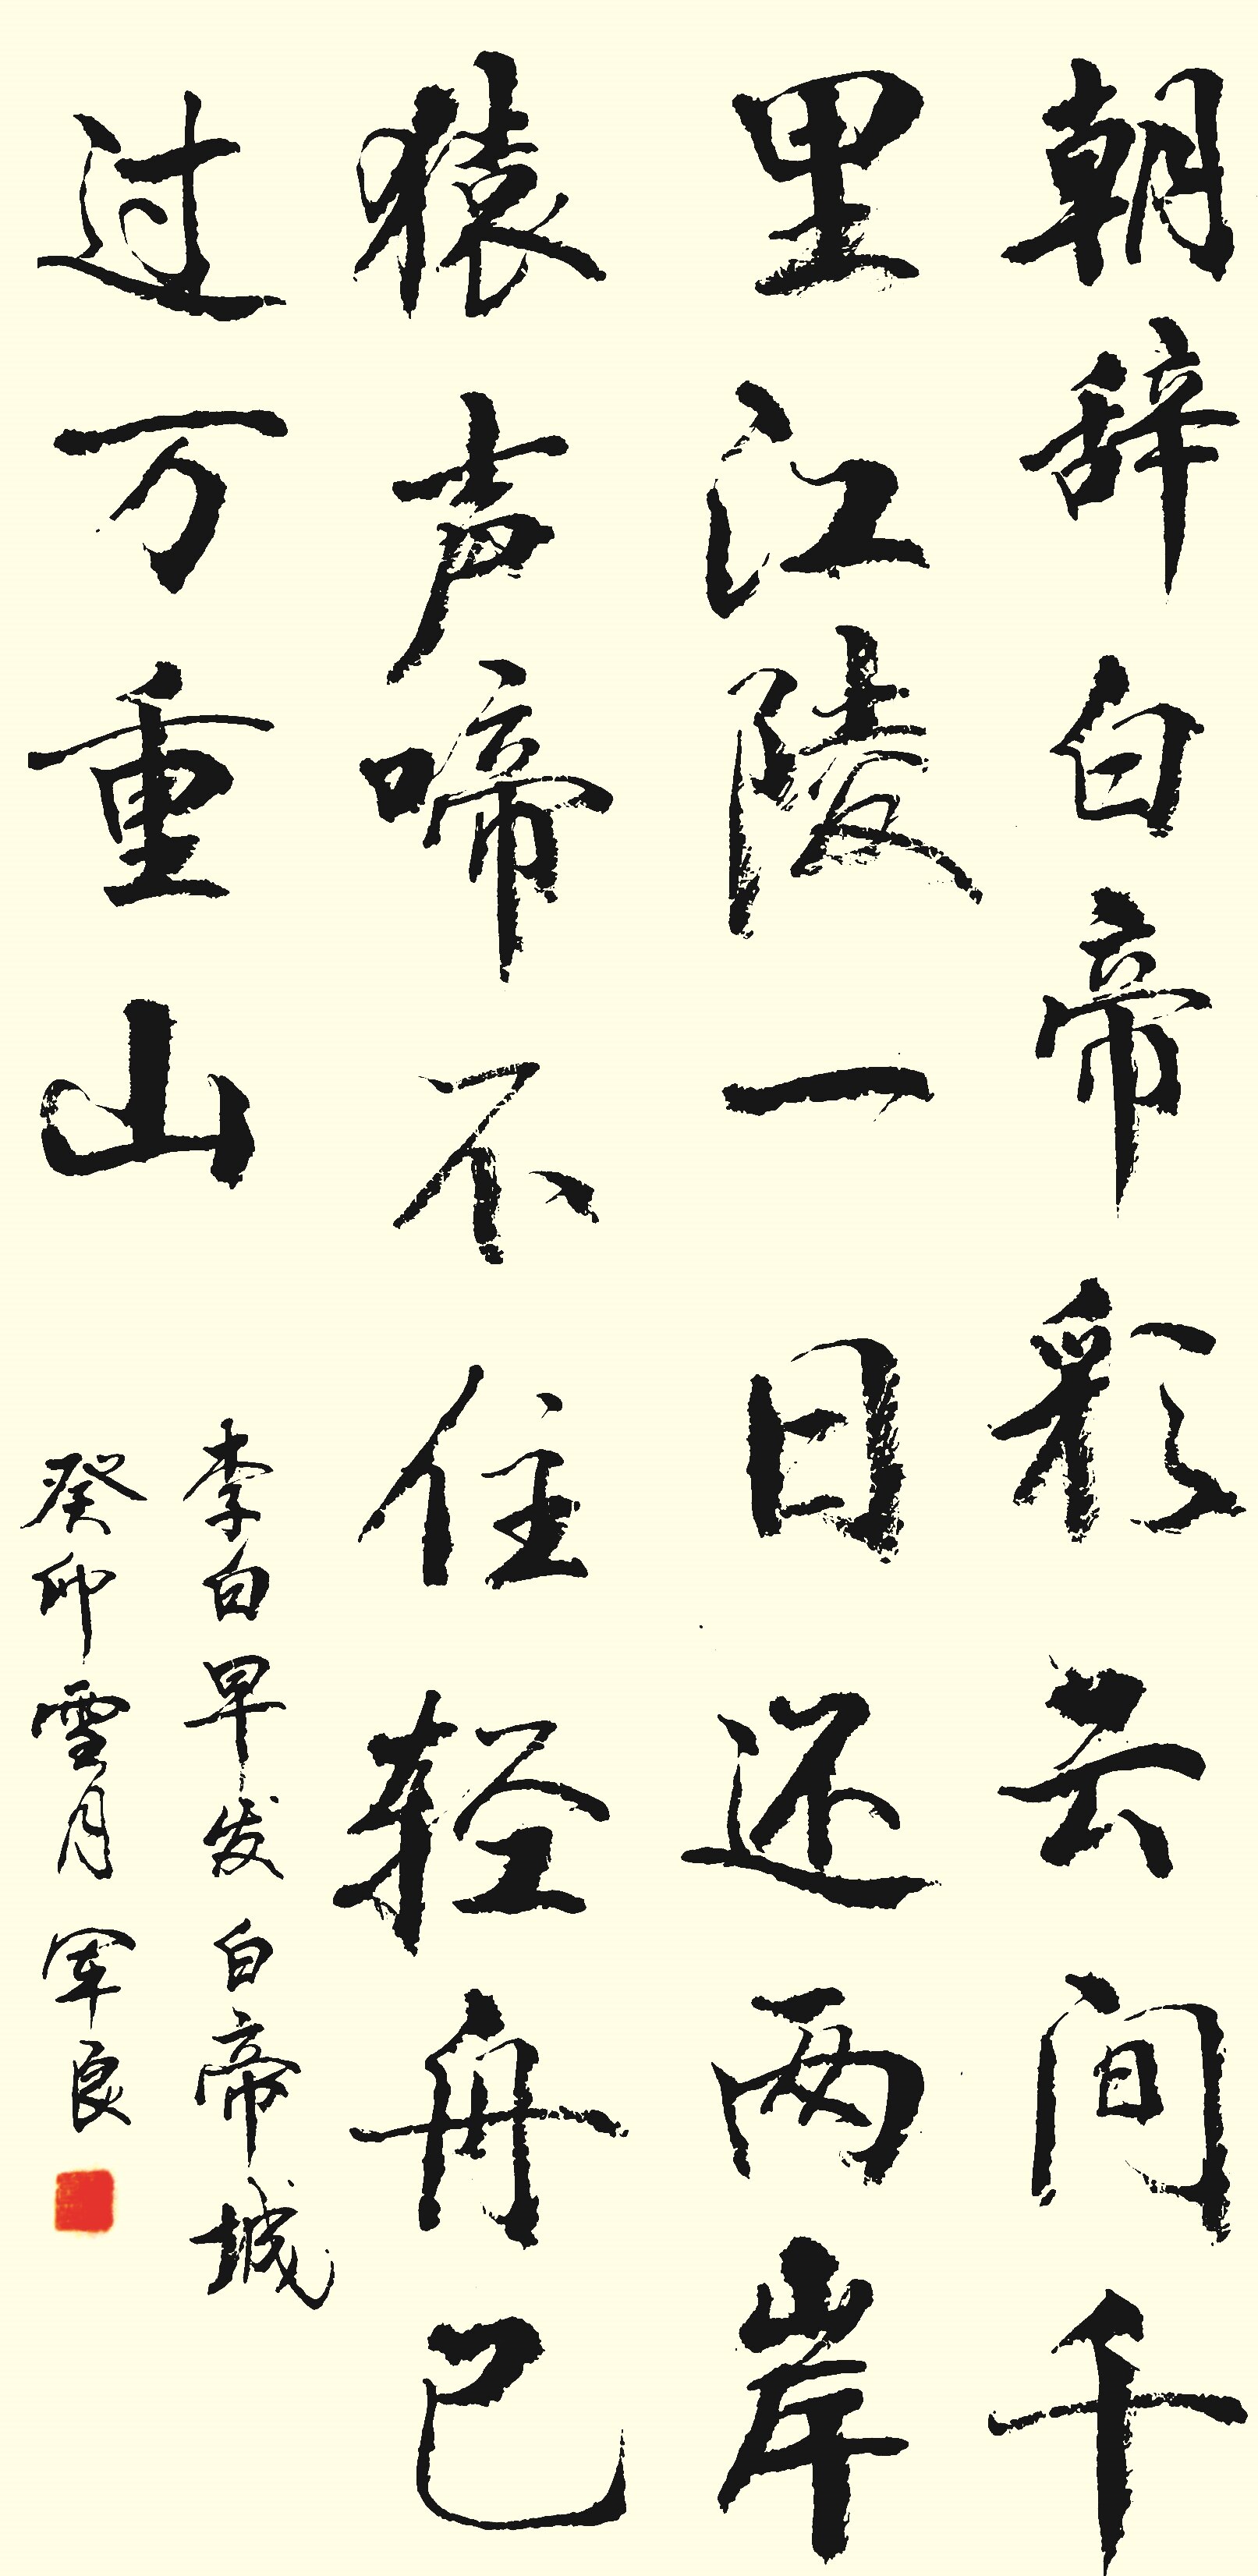 朝辞白帝彩云间千
里江陵一日还两岸
猿声啼不住轻舟已
过万重山
李白早发白帝城
癸卯雪月军良